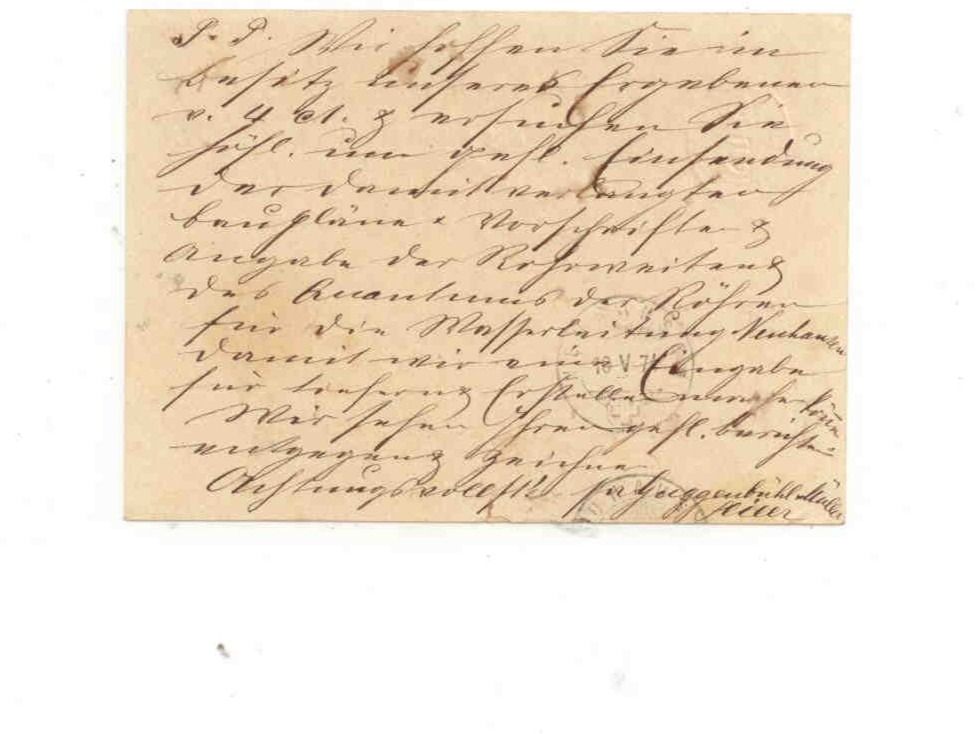 P. P. Wir hoffen Sie im
Besitz unseres Ergebenen
v. 4 ct. & ersuchen Sie
höfl. um gefl. Einsendung
der damit verlangten
Baupläne & Vorschriften &
Angabe der Rohrweiten &
des Quantums der Röhren
für die Wasserleitung Neuhausen
damit wir eine Eingabe
für Lieferung Erstellen
Wir sehen Ihren gefl. Berichten
entgegen & zeichnen
Achtungsvollst Guggenbühl & Müller
18 V 7